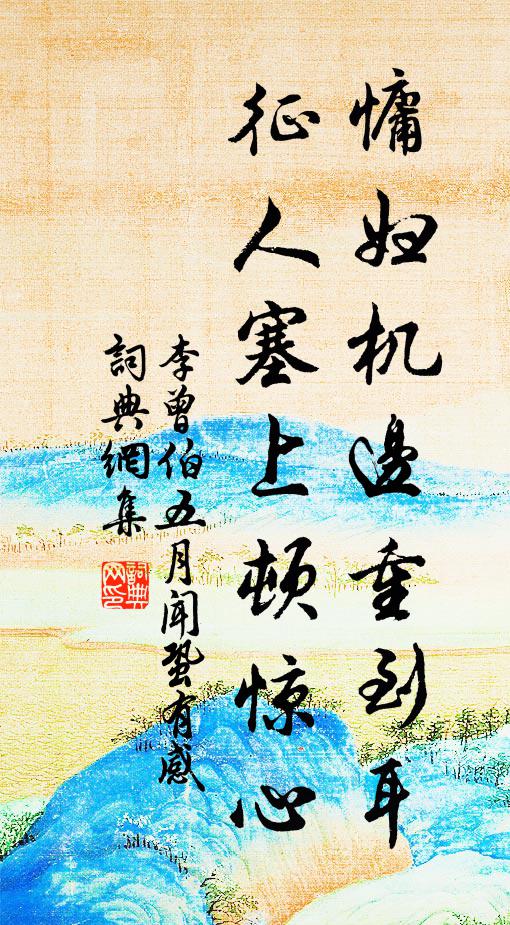 慵妇机邊重到耳
征人塞上顿惊心
李曾伯五月闻蛩有感
詞典網集
詞典網印